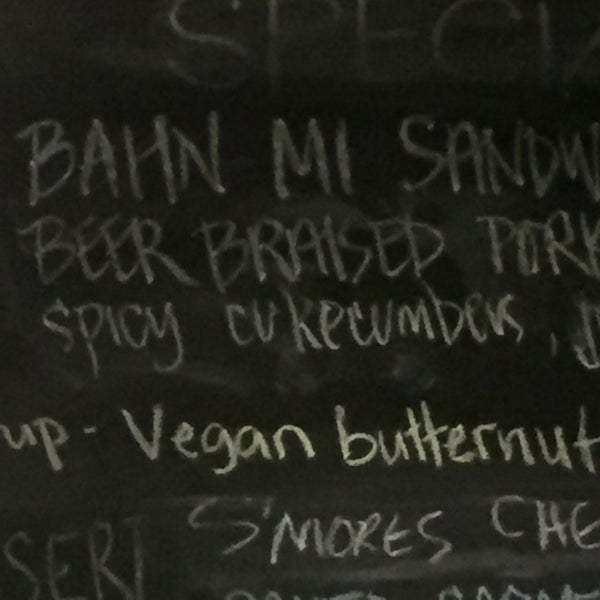 SPECIA
BAHN MI SANDW
BEER BRAISED PORK
SPICY cukecumbers, J
up - Vegan butternut
SERT S'MORES CHE